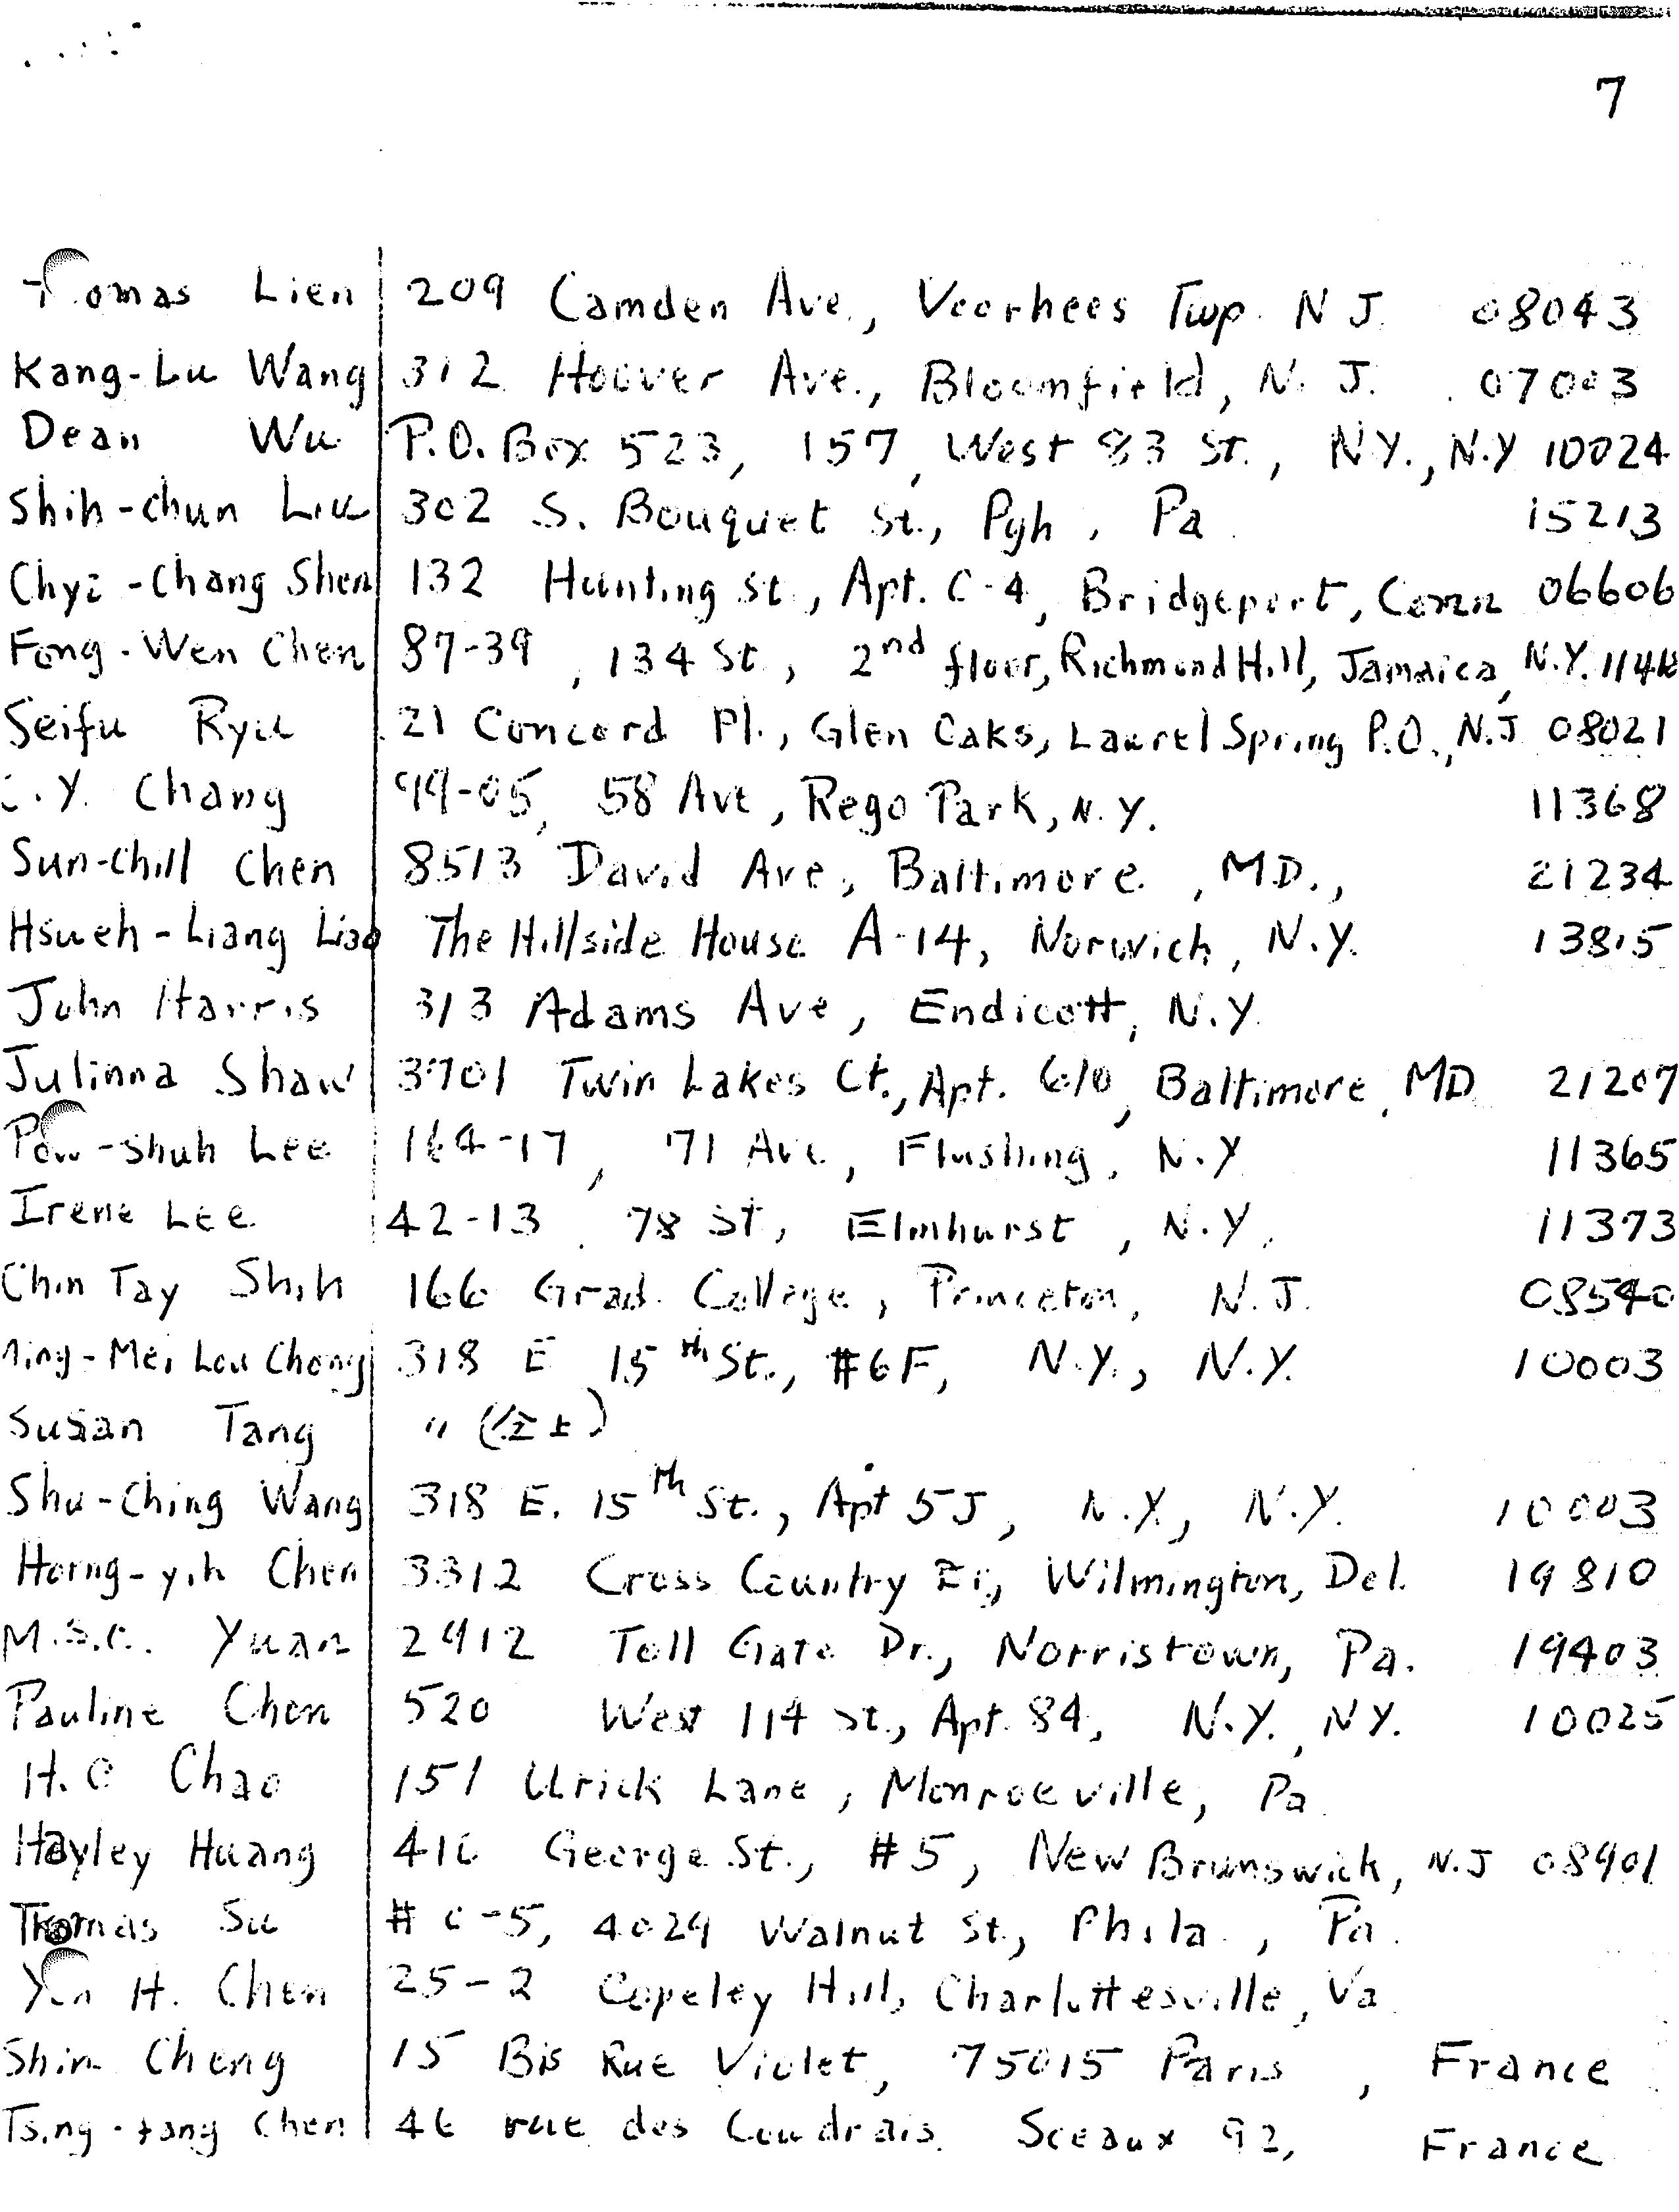 7
Thomas Lien 209 Camden Ave., Voorhees Twp. N J. 08043
Kang-Lu Wang 312 Hoover Ave., Bloomfield, N. J. 07003
Dean Wu P.O. Box 523, 157, West 83 St., N.Y., N.Y 10024
Shih-chun Liu 302 S. Bouquet St., Pgh, Pa 15213
Chyi-Chang Shen 132 Hunting St., Apt. C-4, Bridgeport, Conn 06606
Fong-Wen Chen 87-39, 134 St., 2nd floor, Richmond Hill, Jamaica, N.Y.
Seifu Ryu 21 Concord Pl., Glen Oaks, Laurel Spring P.O., N.J 08021
Y. Chang 99-05, 58 Ave, Rego Park, N.Y. 11368
Sun-Chill Chen 8513 David Ave, Baltimore, MD., 21234
Hsueh-Liang Liao The Hillside House A-14, Norwich, N.Y. 13815
John Harris 313 Adams Ave, Endicott, N.Y.
Julinna Shaw 3701 Twin Lakes Ct., Apt. 610, Baltimore, MD 21207
Pow-shuh Lee 164-17, 71 Ave, Flushing, N.Y 11365
Irene Lee 42-13, 78 St, Elmhurst, N.Y. 11373
Chin Tay Shih 166 Grad. College, Princeton, N.J. 08540
Ming-Mei Lou Chong 318 E 15th St., #6F, N.Y., N.Y. 10003
Susan Tang " (仝上)
Shu-Ching Wang 318 E. 15th St., Apt 5J, N.Y., N.Y. 10003
Horng-yih Chen 3312 Cross Country Wilmington, Del. 19810
M.S.C. Yuan 2912 Toll Gate Dr., Norristown, Pa. 19403
Pauline Chen 520 West 114 St., Apt. 84, N.Y., NY. 10025
H. C Chao 151 Urick Lane, Monroeville, Pa.
Hayley Huang 416 George St., #5, New Brunswick, N.J 08901
Thomas Su # C-5, 4029 Walnut St., Phila., Pa.
H. Chen 25-2 Copeley Hill, Charlottesville, Va.
Shin Cheng 15 Bis Rue Violet, 75015 Paris, France
Tsing-tang Chen 46 rue des Coudrais. Sceaux 92, France